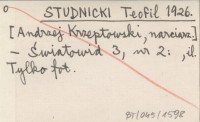 o STUDNICKI Teofil 1926.
[Andrzej Krzeptowski, narciarz.]
– Światowid 3, nr 2: , il
Tylko fot.
BJ/045/1598